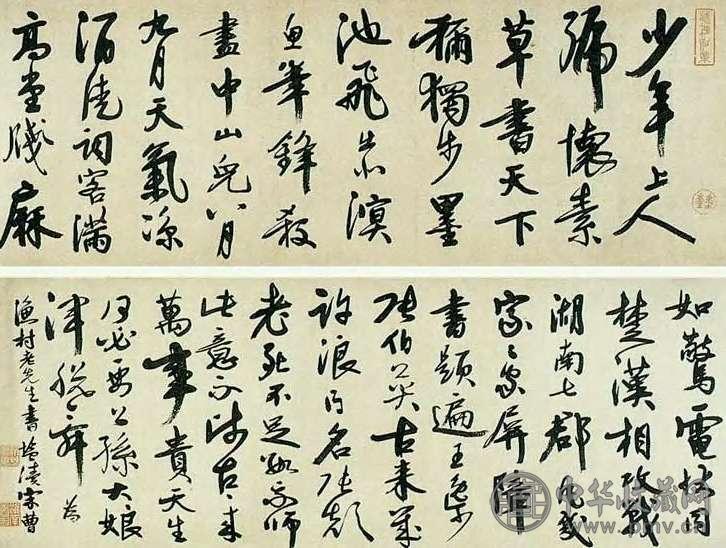 少年上人
號懷素
草書天下
稱獨步墨
池飛出溟
魚筆鋒殺
盡中山兔八月
九月天氣凉
酒徒詞客滿
高堂牋麻
如驚電狀同
楚漢相攻戰
湖南七郡凡幾
家〻家屏障
書題遍王逸少
張伯英古来幾
許浪得名張顛
老死不足數我師
此意不師古〻来
萬事貴天生
何必要公孫大娘
渾脫舞 為
漁村老先生書 塩瀆宋曹
中华收藏网